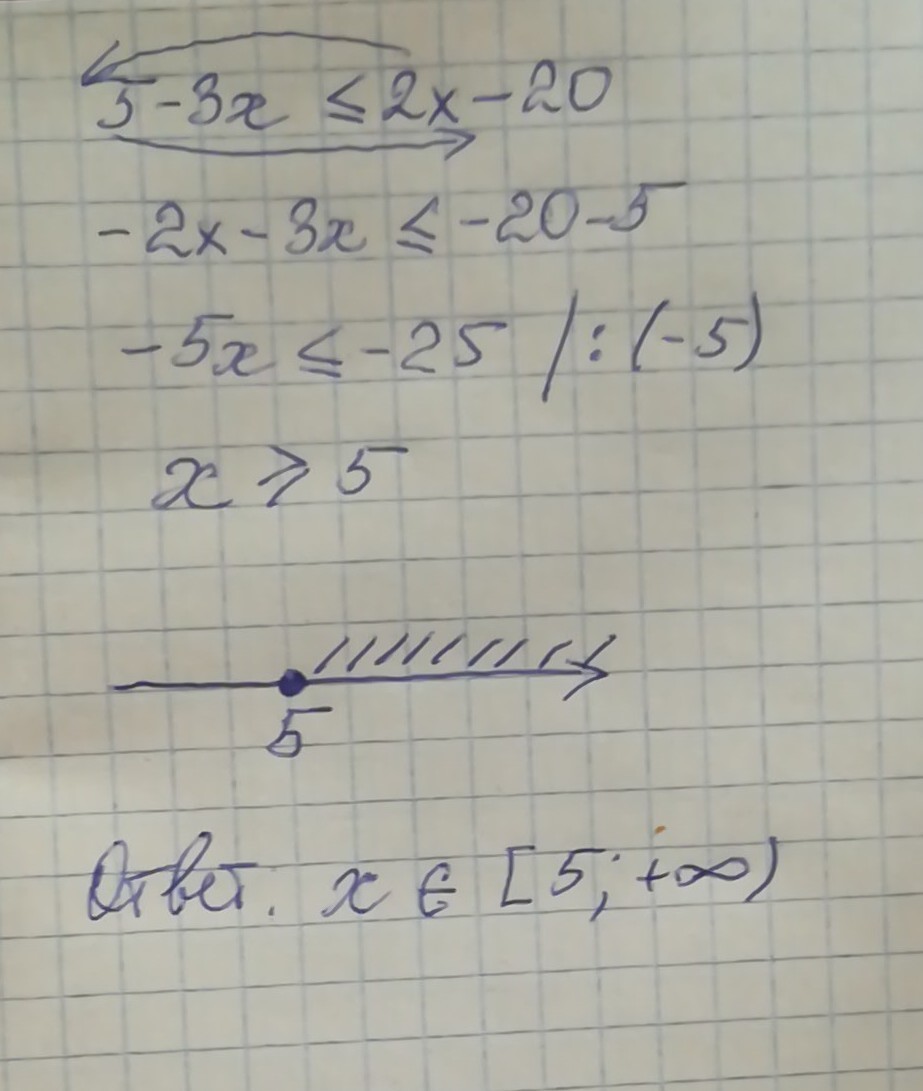 5 - 3x ≤ 2x - 20
-2x - 3x ≤ -20 - 5
-5x ≤ -25 / : (-5)
x ⩾ 5
5
Ответ. x ∈ [5; +∞)